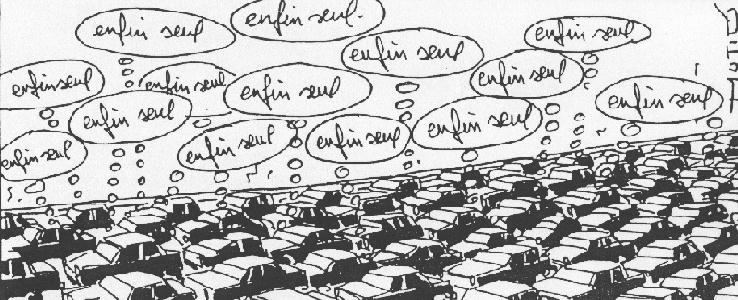 enfin seul
enfin seul.
enfin seul
enfin seul
enfin seul
enfin seul
enfin seul
enfin seul
enfin seul
enfin seul
enfin seul
enfin seul
enfin seul
enfin seul